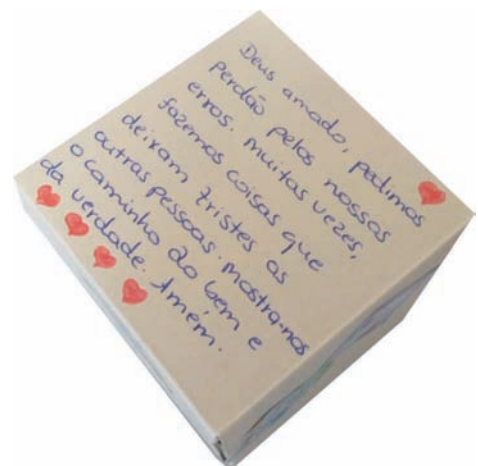 Deus amado, pedimos
perdão pelos nossos
erros. Muitas vezes,
fazemos coisas que
deixam tristes as
outras pessoas. Mostra-nos
o caminho do bem e
da verdade. Amém.